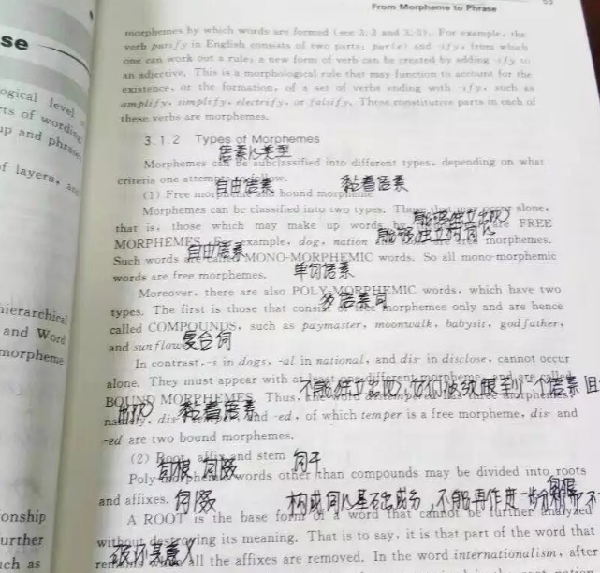 From Morpheme to Phrase 53
se
morphemes by which words are formed (see 3.2 and 3.3). For example, the
verb purify in English consists of two parts: pur(e) and -ify, from which
one can work out a rule; a new form of verb can be created by adding -ify to
an adjective. This is a morphological rule that may function to account for the
existence, or the formation, of a set of verbs ending with -ify, such as
amplify, simplify, electrify, or falsify. These constitutive parts in each of
these verbs are morphemes.
ogical level
rts of wording
up and phrase
3.1.2 Types of Morphemes
语素的类型
Morphemes can be subclassified into different types, depending on what
criteria one attempts to follow.
自由语素 黏着语素
of layers, are
(1) Free morpheme and bound morpheme
Morphemes can be classified into two types. Those that may occur alone,
能够独立出现
that is, those which may make up words by are FREE
能够独立构词
MORPHEMES. For example, dog, nation are free morphemes.
自由语素
Such words are called MONO-MORPHEMIC words. So all mono-morphemic
words are free morphemes.
单词语素
Moreover, there are also POLY-MORPHEMIC words, which have two
多语素词
types. The first is those that consist of free morphemes only and are hence
called COMPOUNDS, such as paymaster, moonwalk, babysit, godfather,
and sunflower
复合词
hierarchical
and Word
morpheme
In contrast, -s in dogs, -al in national, and dis in disclose, cannot occur
alone. They must appear with at least one different morpheme, and are called
不能独立出现,它们被纳
到一个语素
BOUND MORPHEMES. Thus, the word distempered has three morphemes,
出现 黏着语素
namely, dis-, temper and -ed, of which temper is a free morpheme, dis and
-ed are two bound morphemes.
(2) Root, affix and stem
词根,词缀 词干
Poly-morphemic words other than compounds may be divided into roots
and affixes.
词缀 构成词的基础成分,不能再作进一步分
词根
A ROOT is the base form of a word that cannot be further analyzed
without destroying its meaning. That is to say, it is that part of the word that
破坏其意义
remains all the affixes are removed. In the word internationalism, after
onship
urther
uch as